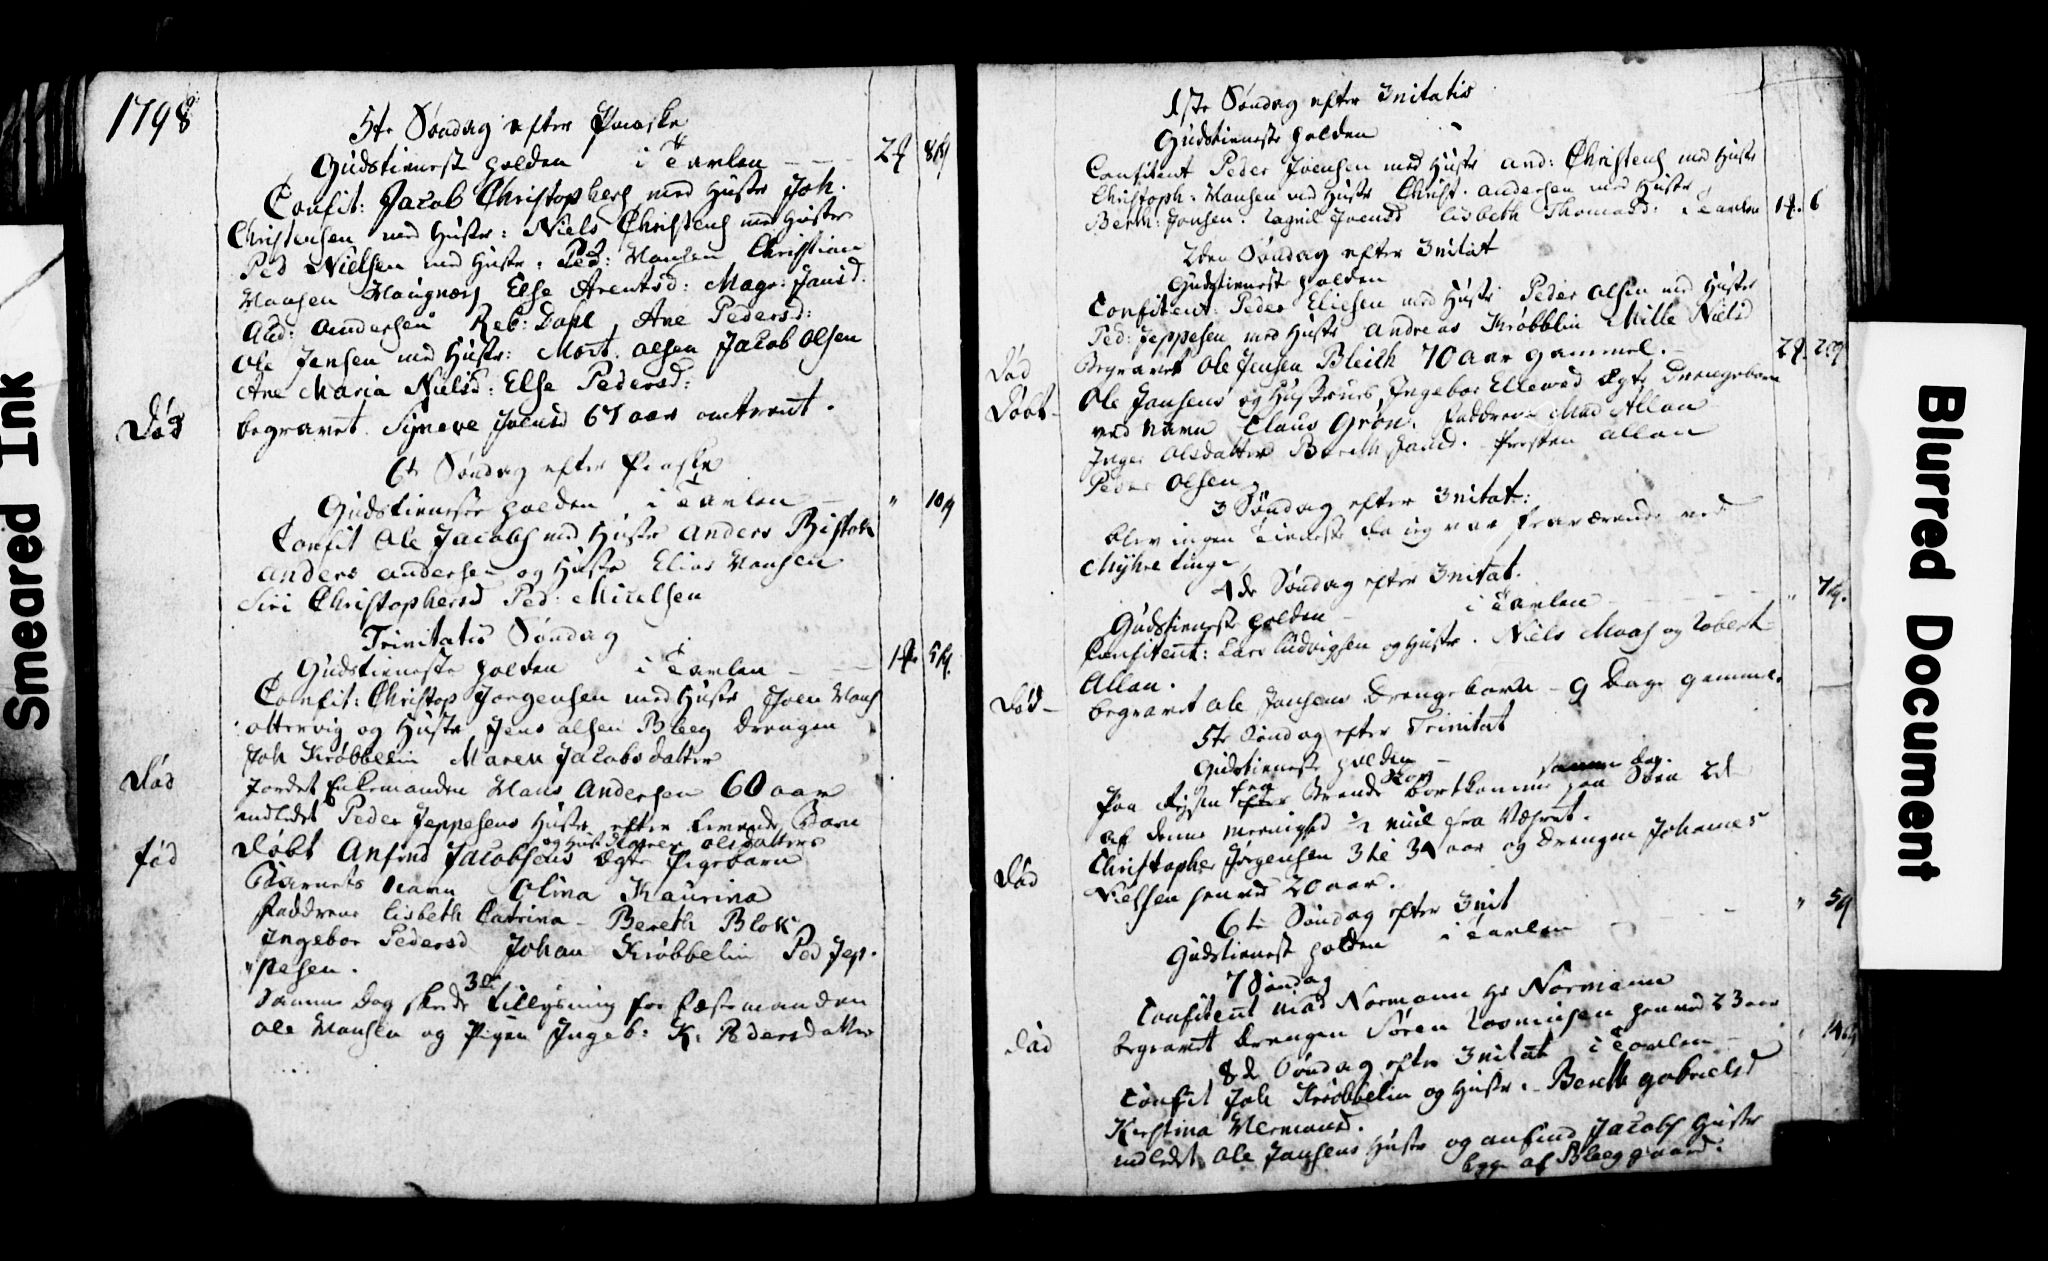 Smeared Ink
1798
5te Søndag efter Paaske
Gudstieneste holden i Tavlen - - - 2# 8ß
Confit: Jacob Christophers med Hustr Joh.
Christensen med Hustr: Niels Christens med Hustr
Ped Nielsen med Hustr. Ped: Hansen Christian
Hansen Haugnæss Else Arentsd: Magr: Jansd.
And: Andersen Reb: Dahl, Ane Pedersd:
Ole Jensen med Hustr: Mort. Olsen Jacob Olsen
Ane Maria Nielsd: Else Pedersd:
Død begravet Synneve Joensd 67 aar omtrent.
6te Søndag efter Paaske
Gudstieneste holden i Tavlen - " 10ß
Confit Ole Jacobs med Hustr Anders Bistok
Anders Andersen og Hustr Elias Hansen
Siri Christophersd Ped: Mickelsen
Trinitatis Søndag
Gudstieneste holden i Tavlen - - 1# 5ß
Confit: Christop Jørgensen med Hustr Joen Hans
Ottervig og Hustr Jens Olsen Bleeg Drengen
Joh Krøbbelin Maren Jacobsdatter
Død Jordet Enkemanden Hans Andersen 60 aar
indledet Peder Jeppesens Hustr efter levende Barn
og Hust Karen Olsdatters
fød Døbt Anfind Jacobsens ægte Pigebarn
Barnets Navn Olina Kaurina
Faddrene Lisbeth Catrina - Bereth Blok
Ingebor Pedersd Johan Krøbbelin Ped Jep-
"pesen.
Samme Dag skede 3de Tillysning for Fæstemanden
Ole Hansen og Pigen Ingeb: K. Pedersdatter
1ste Søndag efter Trinitatis
Gudstieneste holden
Confitent Peder Joensen med Hustr And: Christens med Hustr
Christoph: Hansen med Hustr Christ. Andersen med Hustr
Bernt: Jonsen. Ragnil Joensd Lisbeth Thomasd: Tavlen 1#. 6
2den Søndag efter Trinitat
Gudstieneste holden
Confitent: Peder Eliesen med Hustr Peder Olsen med Hustr
Ped: Jeppesen med Hustr Andreas Krøbblin Mille Nielsd
Død Begravet Ole Jensen Bleith 70 aar gammel. - 2#. 20ß
Døbt - Ole Jansens og Hustrues Ingebor Ellevsd ægte Drengebarn
ved Navn Claus Grøn. Faddrene Mad Allan
Inger Olsdatter Bereth Jansd. Presten Allan
Peder Olsen
3 Søndag efter Trinitat:
blev ingen Tieneste da ieg var fraværende ved
Myhre ting
4de Søndag efter Trinitat.
Gudstieneste holden - i Tavlen - - - " 7ß.
Confitent: Lars Ludvigsen og Hustr. Niels Maas og Robert
Allan.
Død - begravet Ole Jansens Drengebarn - 9 Dage gammel.
5te Søndag efter Trinitat
Gudstieneste holden -
Paa Reysen fra bortkomme paa Søen 2de
samme Dag.
af denne Meenighed ½ Miil fra Været.
Død Christopher Jørgensen 3 te 34 aar og Drengen Johannes
Nielsen henved 20 aar.
6te Søndag efter Trinit
Gudstieneste holden i Tavlen - - " 5ß
7 Søndag
Confitent Mad Normann Hr Normann
Død begravet Drengen Søren Rasmusen henved 23 aar
8de Søndag efter Trinitat i Tavlen - " 14ß
Confit Joh Krøbbelin og Hustr. Bereth Gabrielsd
Kirstina Hermansd.
indledet Ole Jansens Hustr og Anfind Jacobs Hustr
begge af Bleeggaard.
Blurred Document